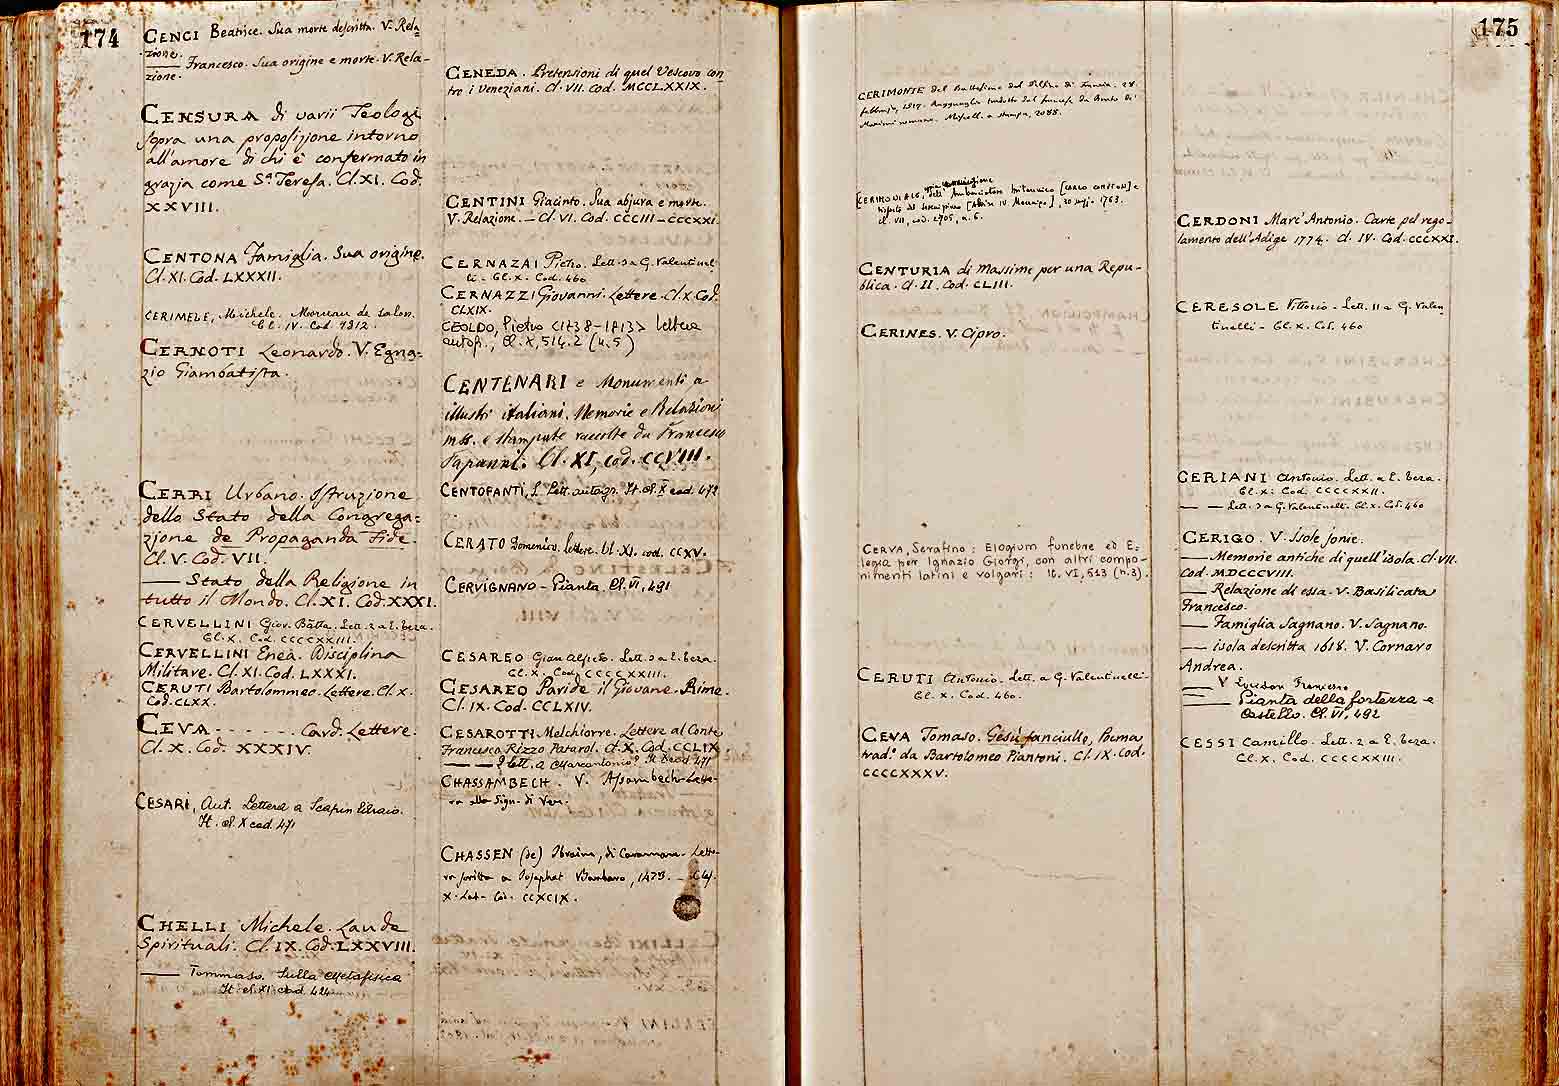 174
CENCI Beatrice. Sua morte descritta. V. Rela-
zione.
—— Francesco. Sua origine e morte. V. Rela-
zione.
CENSURA di varii Teologi
sopra una proposizione intorno
all'amore di chi è confermato in
grazia come Sª Teresa. Cl. XI. Cod.
XXVIII.
CENTONA Famiglia. Sua origine.
Cl. XI. Cod. LXXXII.
CERIMELE, Michele.
Cl. IV. Cod.
CERNOTI Leonardo. V. Egna-
zio Giambatista.
CERRI Urbano. Istruzione
dello Stato della Congrega=
zione de Propaganda Fide.
Cl. V. Cod. VII.
—— Stato della Religione in
tutto il Mondo. Cl. XI. Cod. XXXI.
CERVELLINI Giov. Batta. Lett. 2 a E. Cicogna.
Cl. X. Cod. CCCCXXIII.
CERVELLINI Enea. Disciplina
Militare. Cl. XI. Cod. LXXXI.
CERUTI Bartolommeo. Lettere. Cl. X.
Cod. CLXX.
CEVA - - - - - - Card. Lettere.
Cl. X. Cod. XXXIV.
CESARI, Ant. Lettera a Scapin libraio.
It. cl. X cod. 471
CHELLI Michele. Laude
Spirituali. Cl. IX. Cod. LXXVIII.
—— Tommaso. Sulla Metafisica
It. cl. XI cod. 424
CENEDA. Pretensioni di quel Vescovo con
tro i Veneziani. Cl. VII. Cod. MCCLXXIX.
CENTINI Giacinto. Sua abjura e morte.
V. Relazione. — Cl. VI. Cod. CCCIII — CCCXXI.
CERNAZAI Pietro. Lett. 2 a G. Valentinel
li - Cl. X. Cod. 460
CERNAZZI Giovanni. Lettere. Cl. X. Cod.
CLIX.
CEOLDO, Pietro <1738-1813> lettera
autogr., Cl. X, 514.2 (n. 5)
CENTENARI e Monumenti a
illustri italiani. Memorie e Relazioni
mss. e stampate raccolte da Francesco
Fapanni. Cl. XI, cod. CCVIII.
CENTOFANTI, S. Lett. autogr. It. cl. X cod. 472
CERATO Domenico. lettere. Cl. XI. cod. CCXV.
CERVIGNANO - Pianta. Cl. VI, 491
CESAREO Gian Lett. 2 a E.
Cl. X. Cod. CCCCXXIII.
CESAREO Paride il Giovane. Rime.
Cl. IX. Cod. CCLXIV.
CESAROTTI Melchiorre. Lettere al Conte
Francesco Rizzo Patarol. Cl. X. Cod. CCLIX
—— 2 lett. a Marcantonio It. X cod 471
CHASSAMBECH. V. Assambech. Lette-
ra alla Sign. di Ven.
CHASSEN (de) Ibraim, di Caramani. Lette-
ra scritta a Josaphat Barbaro, 1473. - Cl.
X. Lat. Cod. CCXCIX.
175
CERIMONIE del Battesimo del
febbrajo 1817. Ragguaglio tradotto dal francese da
romano. Miscell. a stampa, 2088.
CERIMONIALE, dell' Ambasciatore britannico
risposta del Serenissimo [Alvise IV Mocenigo], 1763.
cl. VII, cod. 1705, n. 6.
CENTURIA di Massime per una Repu-
blica. Cl. II. Cod. CLIII.
CERINES. V. Cipro.
CERVA, Serafino: Elogium funebre ed E-
legia per Ignazio Giorgi, con altri compo-
nimenti latini e volgari: It. VI, 513 (n. 3).
CERUTI Antonio. Lett. a G. Valentinelli.
Cl. X. Cod. 460.
CEVA Tomaso. Gesù fanciullo, Poema
trad.º da Bartolomeo Piantoni. Cl. IX. Cod.
CCCCXXXV.
CERDONI Marc'Antonio. Carte pel rego-
lamento dell'Adige 1774. Cl. IV. Cod. CCCXXI.
CERESOLE Vittorio - Lett. 11 a G. Valen
tinelli - Cl. X. Cod. 460
CERIANI Antonio. Lett. a E.
Cl. X. Cod. CCCCXXII.
—— Lett. 2 a G. Valentinelli. Cl. X. Cod. 460
CERIGO. V. Isole jonie.
—— Memorie antiche di quell'isola. Cl. VII.
Cod. MDCCCVIII.
—— Relazione di essa. V. Basilicata
Francesco.
—— Famiglia Sagnano. V. Sagnano.
—— isola descritta 1618. V. Cornaro
Andrea.
—— V. Francesco
—— Pianta della fortezza e
Castello. Cl. VI, 492
CESSI Camillo. Lett. 2 a E.
Cl. X. Cod. CCCCXXIII.